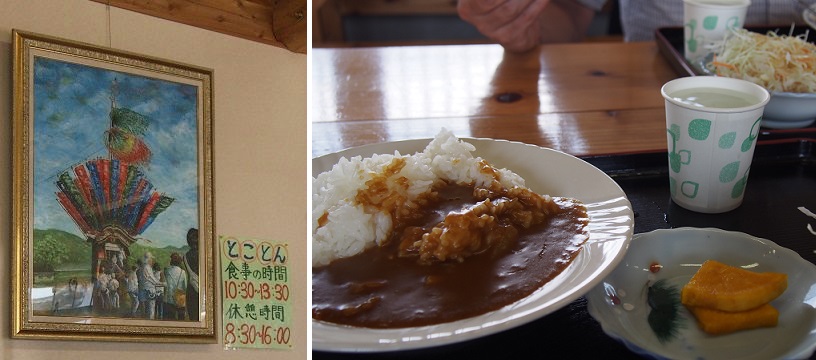 とことん
食事の時間
10:30~13:30
休憩時間
8:30~16:00